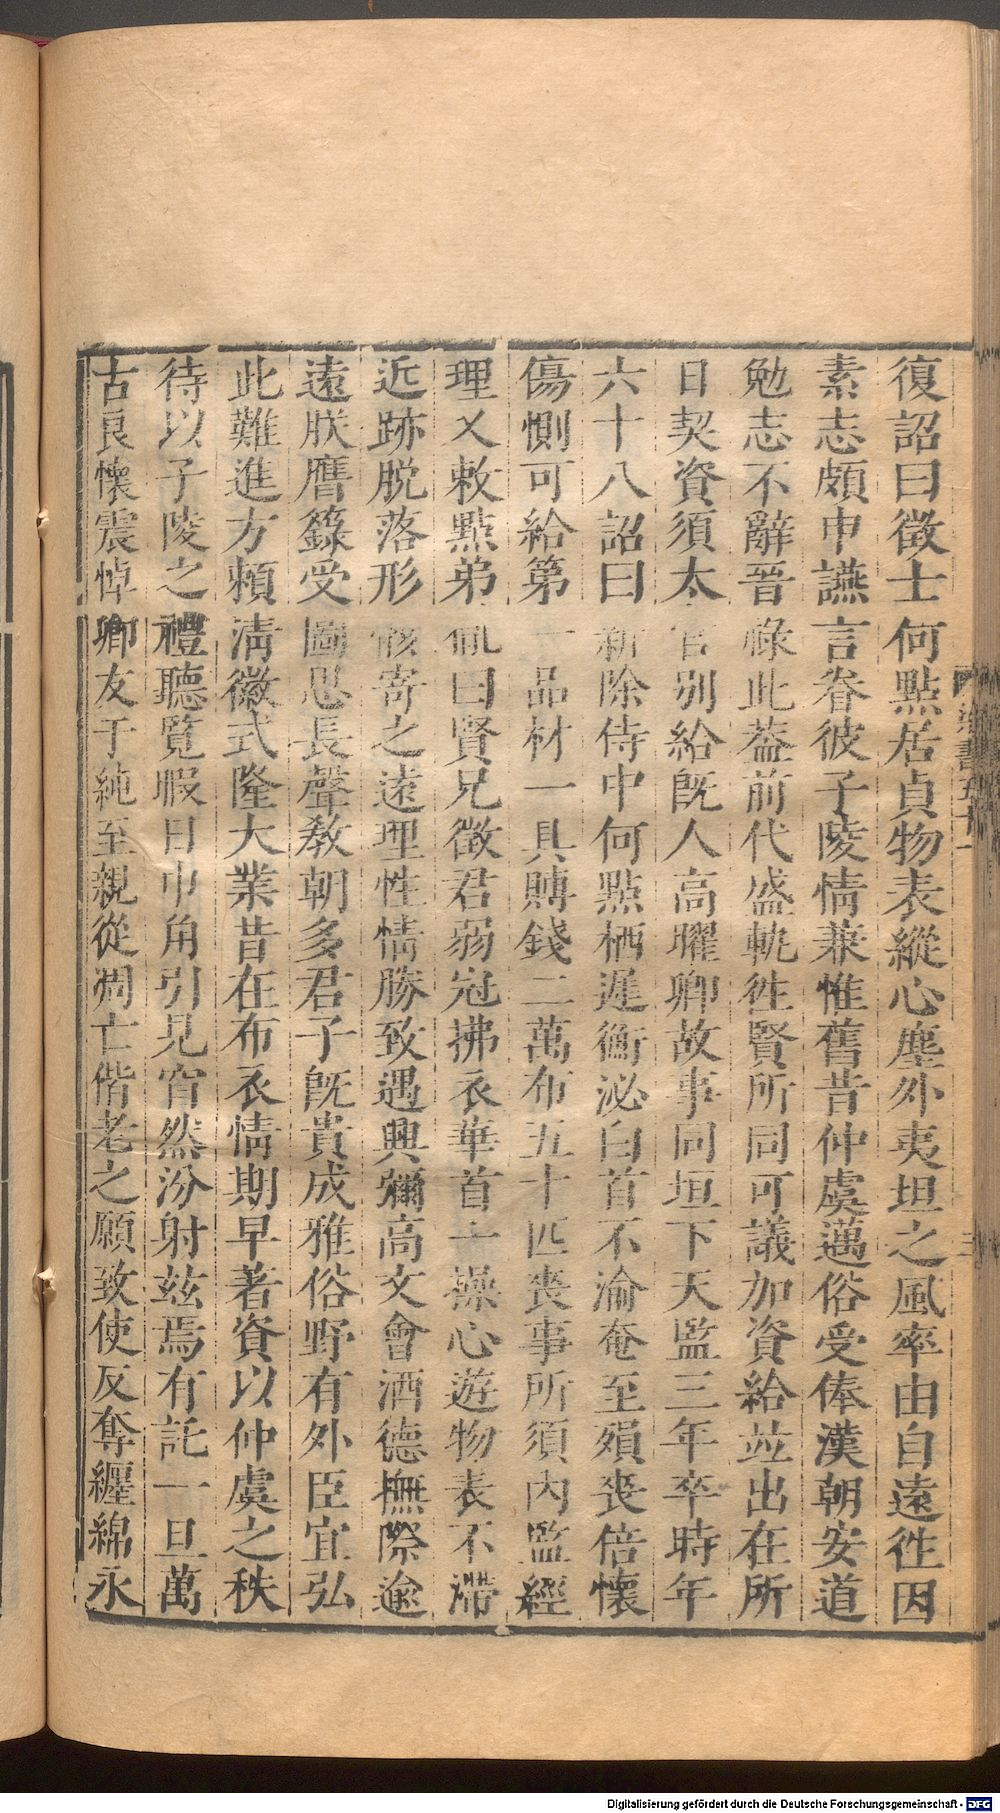 復詔曰徵士何點居貞物表縱心塵外夷坦之風率由自遠徃因
素志頗申讌言眷彼子陵情兼惟舊昔仲虞邁俗受俸漢朝安道
勉志不辭晉祿此葢前代盛軌徃賢所同可議加資給並出在所
日契資須太官別給旣人高曜卿故事同垣下天監三年卒時年
六十八詔曰新除侍中何點栖遲衡泌白首不渝奄至殞喪倍懷
傷惻可給第一品材一具賻錢二萬布五十匹喪事所須內監經
理又敕點弟胤曰賢兄徵君弱冠拂衣華首一操心遊物表不滯
近跡脫落形骸寄之遠理性情勝致遇興彌高文會酒德撫際逾
遠朕膺籙受圖思長聲教朝多君子旣貴成雅俗野有外臣宜弘
此難進方賴淸徽式隆大業昔在布衣情期早著資以仲虞之秩
待以子陵之禮聽覽暇日巾角引見窅然汾射茲焉有託一旦萬
古良懷震悼卿友于純至親從凋亡偕老之願致使反奪纏綿永
梁書五十一
三
Digitalisierung gefördert durch die Deutsche Forschungsgemeinschaft - DFG